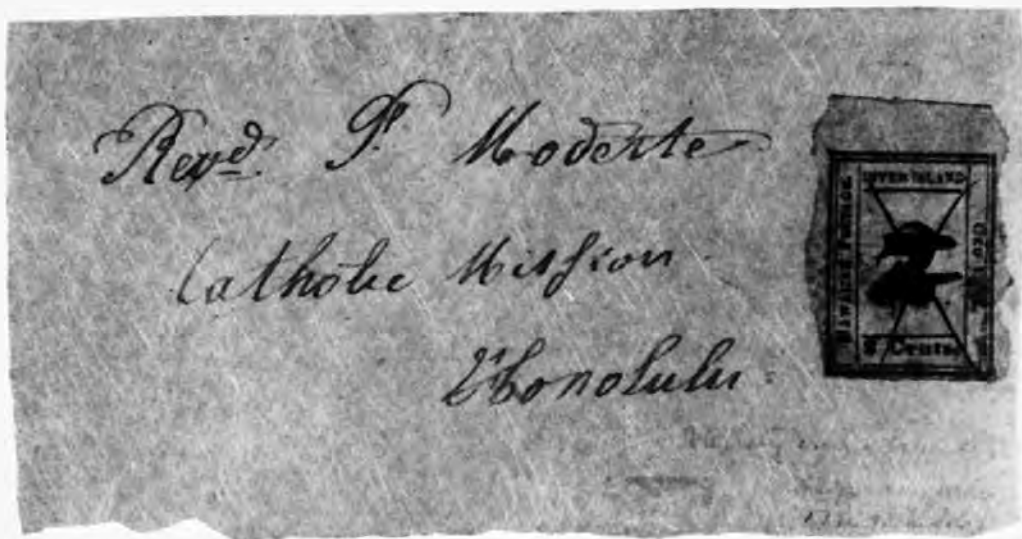 Revd. P. Modeste
Catholic Mission
Honolulu.
INTER ISLAND
HAWAIIAN POSTAGE.
2 Cents.